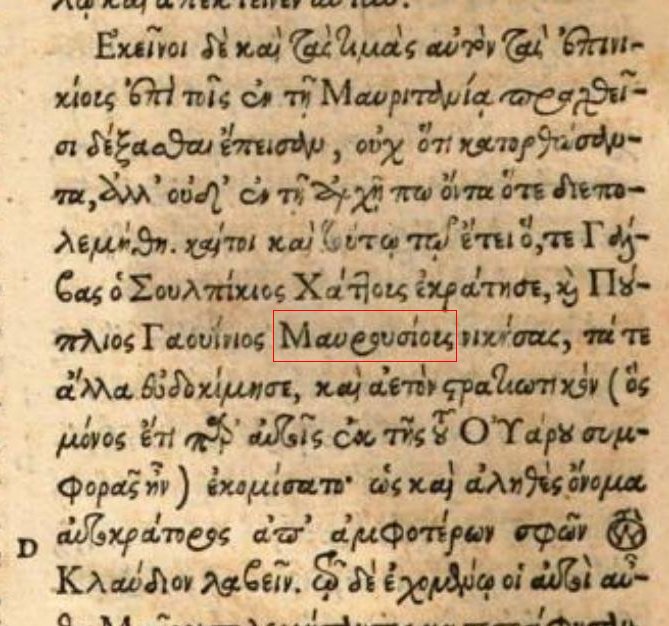 λῳ καὶ ἀπεκτείνεν αὐτόν.
Ἐκεῖνοι δὲ καὶ τὰς τιμὰς αὐτὸν τὰς ἐπινι-
κίοις ἐπὶ τοῖς ἐν τῇ Μαυριτανίᾳ πραχθεῖ-
σι δέξασθαι ἔπεισαν, οὐχ ὅτι κατορθώσαν-
τα, ἀλλ' οὐδ' ἐν τῇ ἀρχῇ πω ὄντα ὅτε διεπο-
λεμήθη. καίτοι καὶ τούτῳ τῷ ἔτει ὅ,τε Γάλ-
βας ὁ Σουλπίκιος Χάττοις ἐκράτησε, καὶ Πού-
πλιος Γαουΐνιος Μαυρουσίοις νικήσας, τά τε
ἄλλα εὐδοκίμησε, καὶ ἀετὸν στρατιωτικὸν (ὃς
μόνος ἔτι παρ' αὐτοῖς ἐκ τῆς τοῦ Οὐάρου συμ-
φορᾶς ἦν) ἐκομίσατο· ὡς καὶ ἀληθὲς ὄνομα
D αὐτοκράτορος ἀπ' ἀμφοτέρων σφῶν τὸν
Κλαύδιον λαβεῖν. τῷ δὲ ἐχομένῳ οἱ αὐτοὶ αὖ-